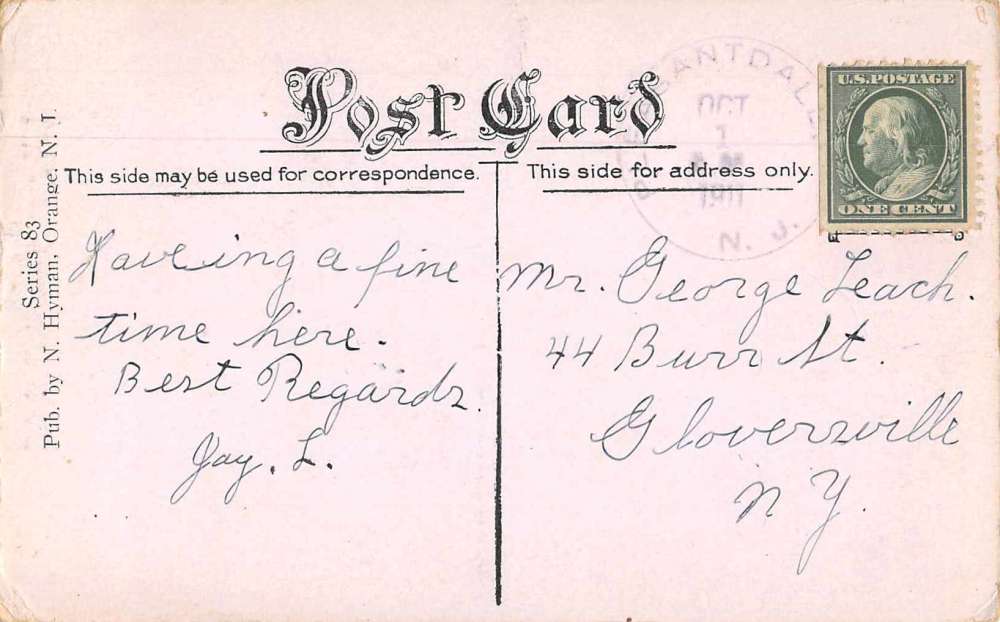 Post Card
This side may be used for correspondence.
This side for address only.
Series 83
Pub. by N. Hyman, Orange, N. J.
OCT
1
1911
N. J.
U.S. POSTAGE
ONE CENT
Haveing a fine
time here.
Best Regards.
Jay. L.
Mr. George Leach.
44 Burr St.
Gloversville
N Y.